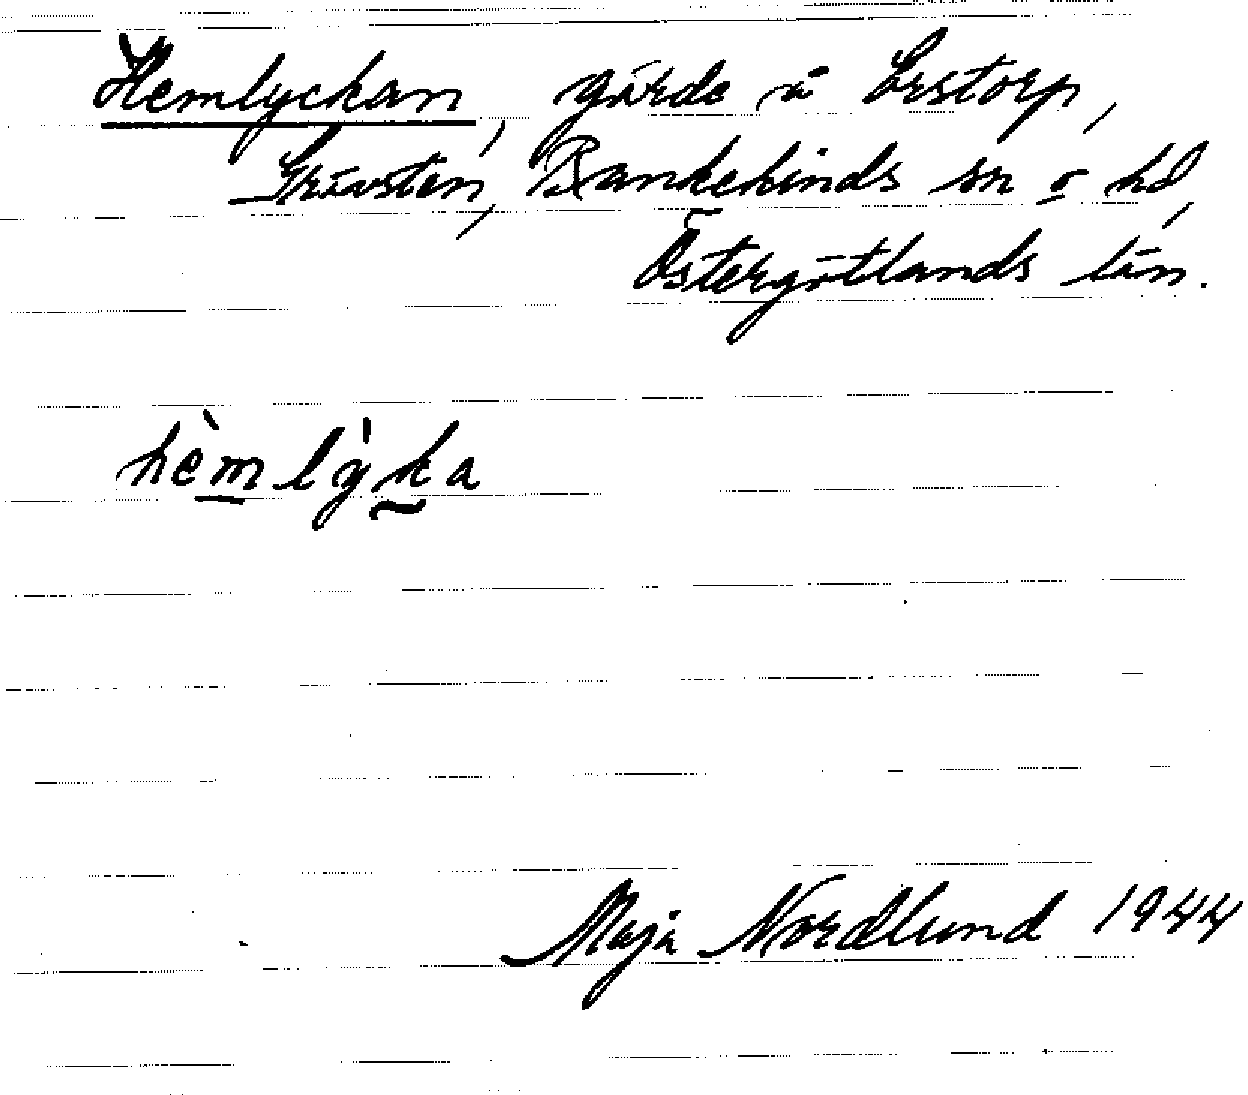 Hemlyckan, gärde å Lrstorp,
Grävsten, Bankekinds sn o hd,
Östergötlands län.
hèmlỳka
Maja Nordlund 1944